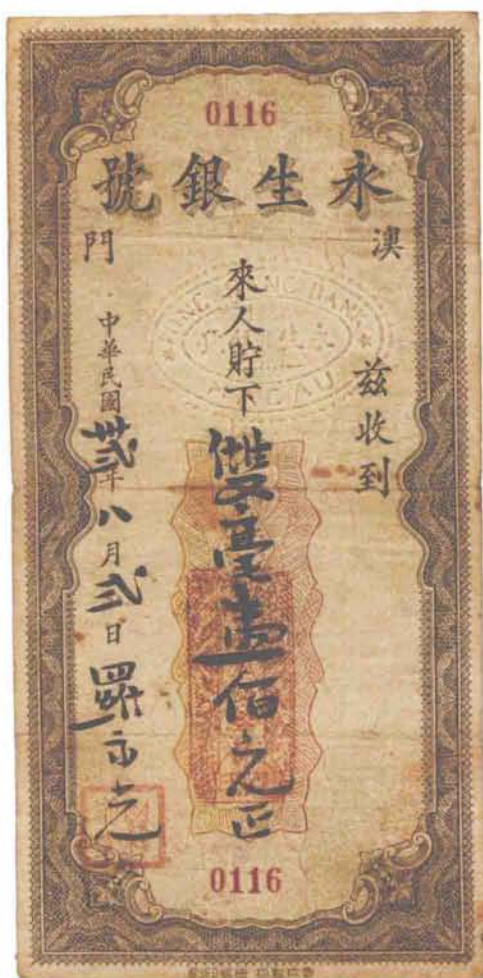 0116
永生銀號
澳門
茲收到
來人貯下雙毫壹佰元正
中華民國卅弍年八月弍日羅
0116